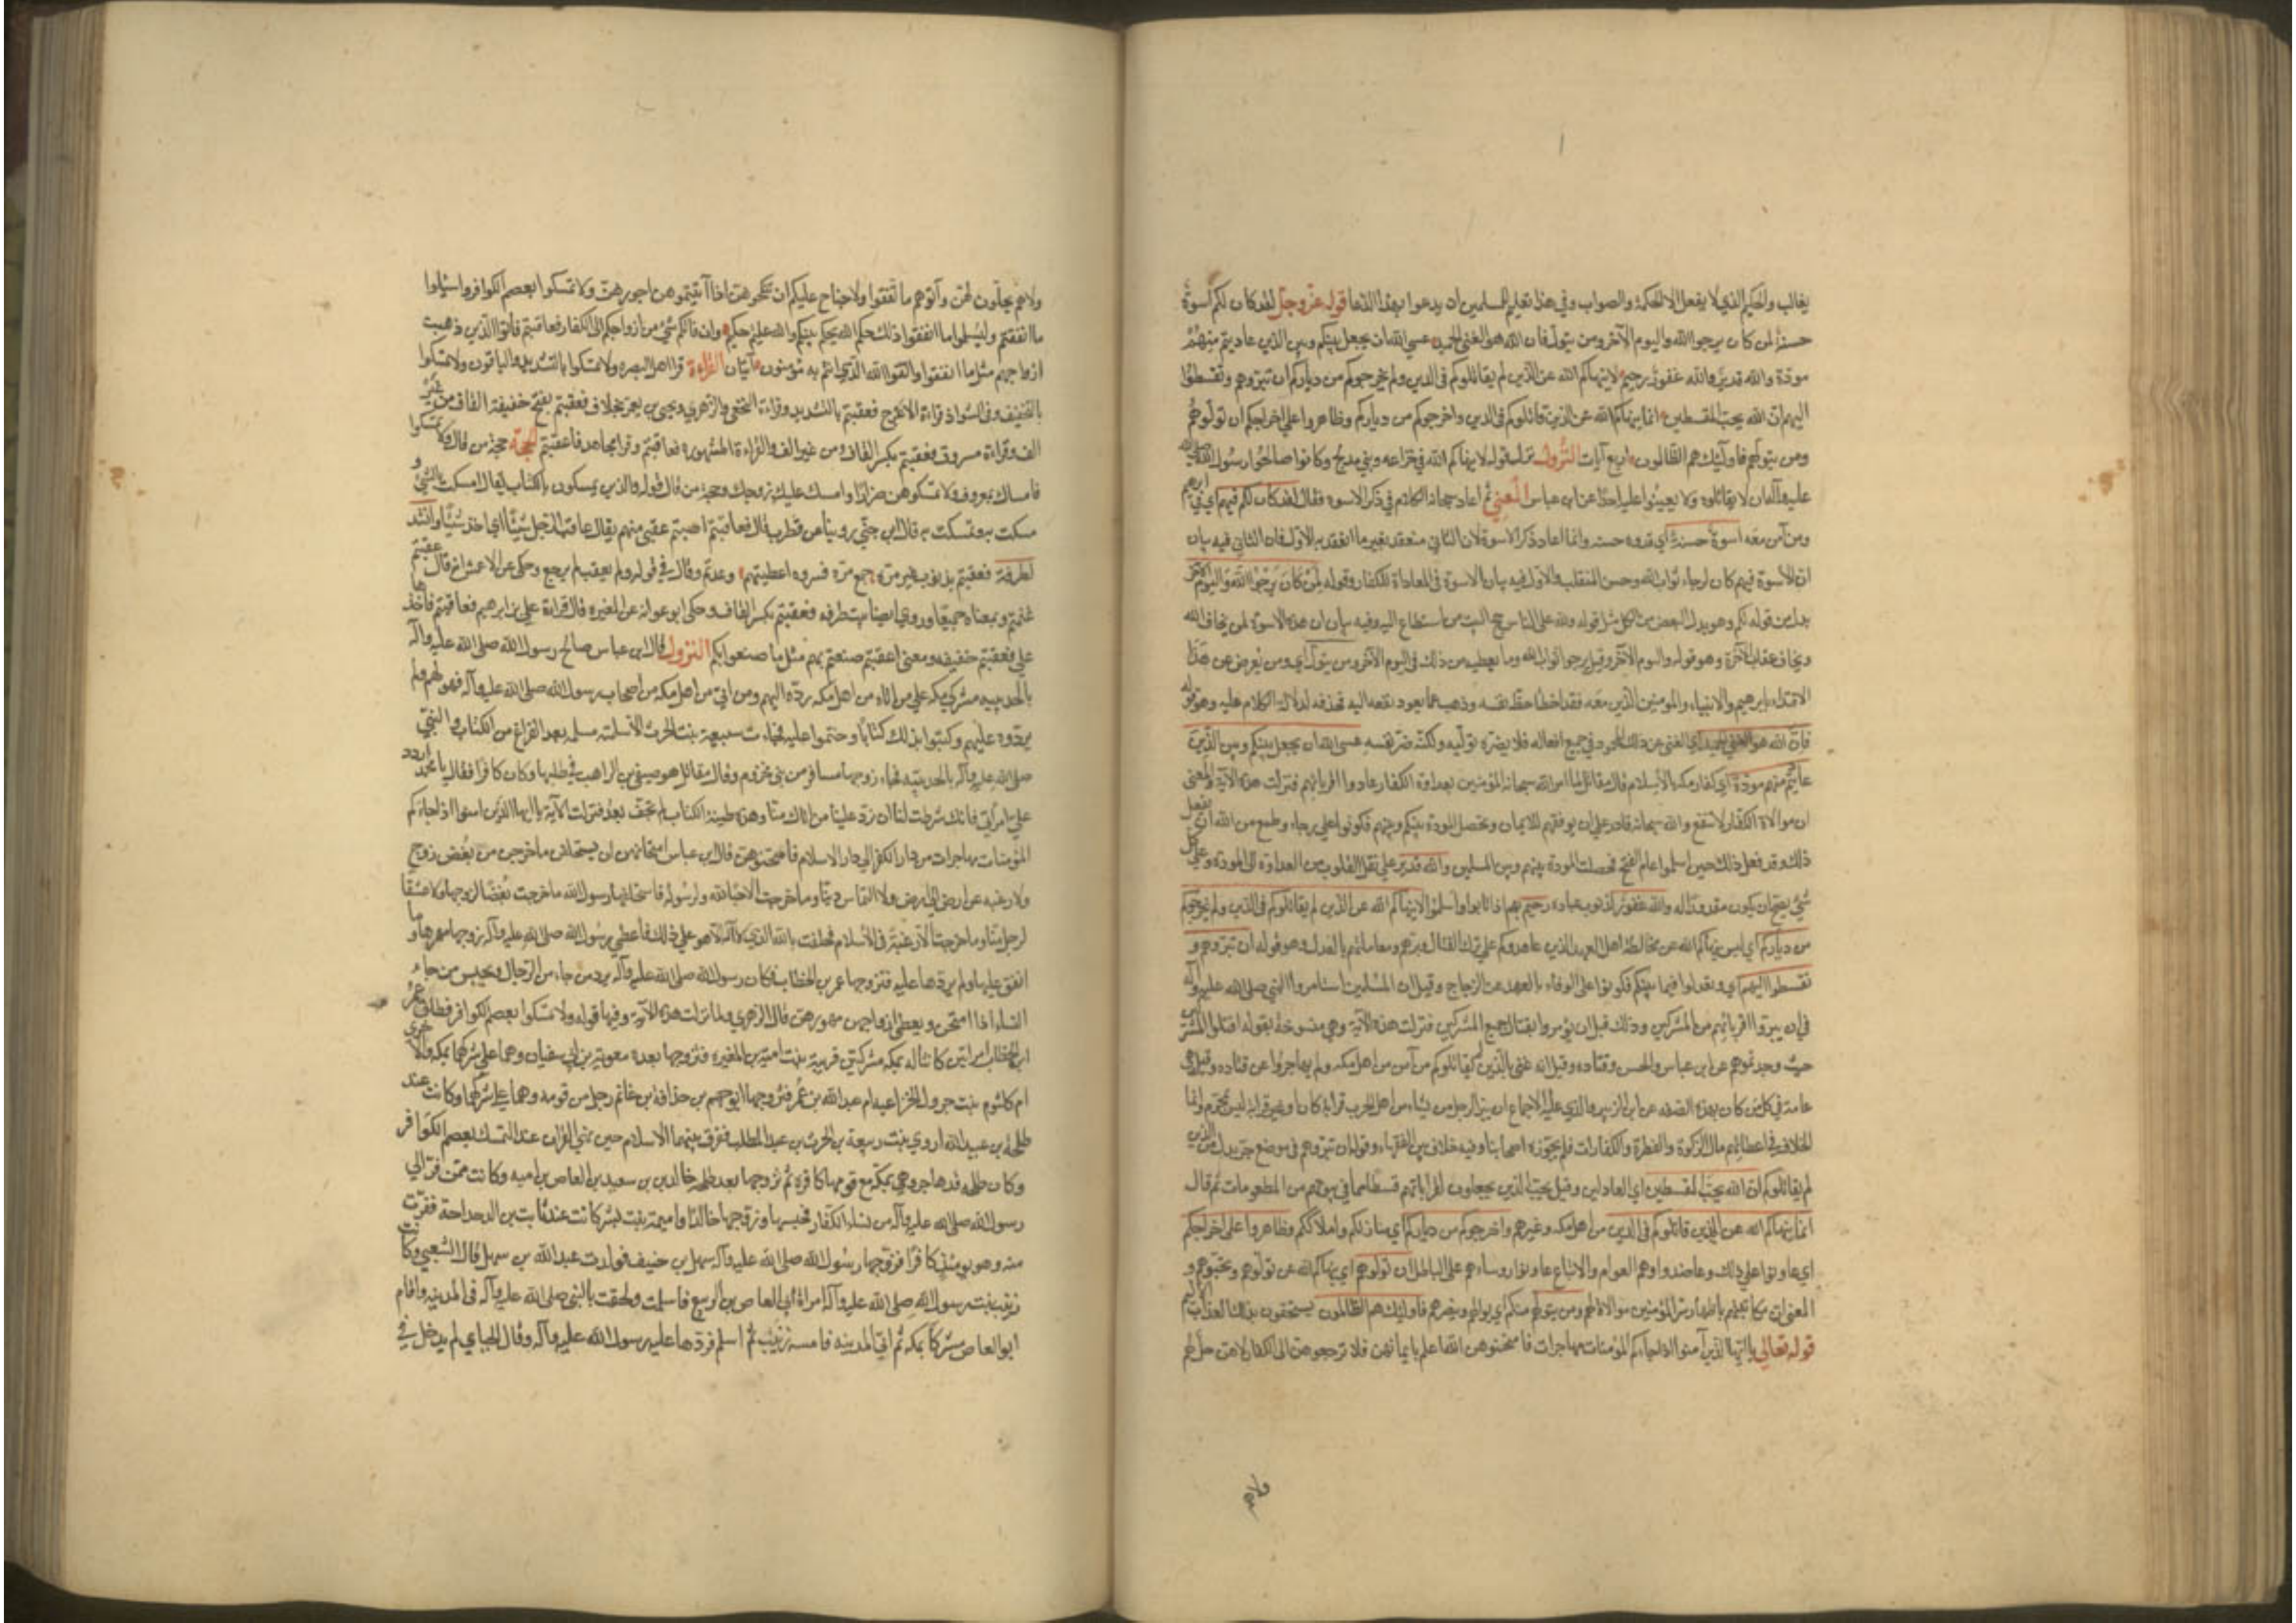 يغالب والحكيم الذي لا يفعل الا الحكمة والصواب وفي هذا تعليم للمسلمين ان يدعوا بهذا الدعا قوله عز وجل لقد كان لكم اسوة
حسنة لمن كان يرجوا الله واليوم الآخر ومن يتول فان الله هو الغني الحميد عسي الله ان يجعل بينكم وبين الذي عاديتم منهم
مودة والله قدير والله غفور رحيم لا ينهاكم الله عن الذين لم يقاتلوكم في الدين ولم يخرجوكم من دياركم ان تبروهم وتقسطوا
اليهم ان الله يحب المقسطين انما ينهاكم الله عن الذين قاتلوكم في الدين واخرجوكم من دياركم وظاهروا علي اخراجكم ان تولوهم
ومن يتولهم فاولئك هم الظالمون اربع آيات النزول نزل قوله لا ينهاكم الله في خزاعه وبني مدلج وكانوا صالحوا رسول الله صلى الله
عليه وآله ان لا يقاتلوه ولا يعينوا عليه احدا عن ابن عباس المعني ثم اعاد سبحانه الكلام في ذكر الاسوة فقال لقد كان لكم فيهم اي في ابرهيم
ومن آمن معه اسوة حسنة اي قدوه حسنه وانما اعاد ذكر الاسوة لان الثاني منعقد بغير ما انعقد به الاول فان الثاني فيه بيان
ان الاسوة فيهم كان لرجاء ثواب الله وحسن المنقلب والاول فيه بيان الاسوة في المعاداة للكفار وقوله لمن كان يرجوا الله واليوم الآخر
بدل من قوله لكم وهو بدل البعض من الكل مثل قوله ولله على الناس حج البيت من استطاع اليه وفيه بيان ان هذه الاسوة لمن يخاف الله
ويخاف عقاب الآخرة وهو قوله واليوم الآخر وقيل يرجوا ثواب الله وما يعطيه من ذلك في اليوم الآخر ومن يتول اي ومن يعرض عن هذا
الاقتداء بابرهيم والانبياء والمومنين الذين معه فقد اخطا حظ نفسه وذهب عما يعود نفعه اليه فحذفه لدلالة الكلام عليه وهو قوله
فان الله هو الغني الحميد اي الغني عن ذلك المحمود في جميع افعاله فلا يضره توليه ولكنه ضر نفسه عسى الله ان يجعل بينكم وبين الذين
عاديتم منهم مودة اي كفار مكه بالاسلام قال مقاتل لما امر الله سبحانه المؤمنين بعداوة الكفار عادوا اقربائهم فنزلت هذه الآية والمعنى
ان موالاة الكفار لا تنفع والله سبحانه قادر على ان يوفقهم للايمان وتحصل المودة بينكم وبينهم فكونوا على رجاء وطمع من الله ان يفعل
ذلك وقد فعل ذلك حين اسلموا عام الفتح فحصلت المودة بينهم وبين المسلمين والله قدير على نقل القلوب من العداوة الى المودة وعلي كل
شيء يصح ان يكون مقدورا له والله غفور لذنوب عباده رحيم بهم اذا تابوا واسلموا لا ينهاكم الله عن الذين لم يقاتلوكم في الدين ولم يخرجوكم
من دياركم اي ليس ينهاكم الله عن مخالطة اهل العهد الذين عاهدوكم على ترك القتال وبرهم ومعاملتهم بالعدل وهو قوله ان تبروهم و
تقسطوا اليهم اي وتعدلوا فيما بينكم فكونوا على الوفاء بالعهد عن الزجاج وقيل ان المسلمين استامروا النبي صلى الله عليه وآله
في ان يبروا اقربائهم من المشركين وذلك قبل ان يؤمروا بقتال جميع المشركين فنزلت هذه الآية وهي منسوخة بقوله اقتلوا المشركين
حيث وجدتموهم عن ابن عباس والحسن وقتاده وقيل انه عنى بالذين لم يقاتلوكم من آمن من اهل مكه ولم يهاجروا عن قتاده وقيل هي
عامة في كل من كان بهذه الصفة عن ابن الزبير والذي عليه الاجماع ان بر الرجل من يشاء من اهل الحرب قرابة كان او غير قرابة ليس بمحرم وانما
الخلاف في اعطائهم مال الزكوة والفطرة والكفارات فلم يجوزه اصحابنا وفيه خلاف بين الفقهاء وقوله ان تبروهم في موضع جر بدل من الذين
لم يقاتلوكم ان الله يحب المقسطين اي العادلين وقيل يحب الذين يجعلون لقراباتهم قسطا مما في بيوتهم من المطعومات ثم قال
انما ينهاكم الله عن الذين قاتلوكم في الدين من اهل مكه وغيرهم واخرجوكم من دياركم اي منازلكم واملاككم وظاهروا على اخراجكم
اي عاونوا على ذلك وعاضدوهم وهم العوام والاتباع عاونوا روساءهم على الباطل ان تولوهم اي ينهاكم الله عن تولوهم وتحبوهم و
المعنى ان مكاتبتهم باظهار سر المؤمنين موالاة لهم ومن يتولهم منكم اي يوالهم وينصرهم فاولئك هم الظالمون يستحقون بذلك العذاب الاليم
قوله تعالى يا ايها الذين آمنوا اذا جاءكم المؤمنات مهاجرات فامتحنوهن الله اعلم بايمانهن فلا ترجعوهن الى الكفار لا هن حل لهم
ولاهم
ولاهم يحلون لهن وآتوهم ما انفقوا ولا جناح عليكم ان تنكحوهن اذا آتيتموهن اجورهن ولا تمسكوا بعصم الكوافر واسئلوا
ما انفقتم وليسئلوا ما انفقوا ذلك حكم الله يحكم بينكم والله عليم حكيم وان فاتكم شيء من ازواجكم الى الكفار فعاقبتم فآتوا الذين ذهبت
ازواجهم مثل ما انفقوا واتقوا الله الذي انتم به مؤمنون آيتان القراءة قرا اهل البصره ولا تمسكوا بالتشديد والباقون ولا تمسكوا
بالتخفيف وفي الشواذ قراءة الاعرج فعقبتم بالتشديد وقراءة النخعي والزهري ويحيى بن يعمر بخلاف فعقبتم بفتح خفيفة القاف من غير
الف وقراءة مسروق فعقبتم بكسر القاف من غير الف والقراءة المشهورة فعاقبتم وقرا مجاهد فاعقبتم الحجة حجة من قال ولا تمسكوا
فامساك بمعروف ولا تمسكوهن ضرارا وامسك عليك زوجك وحجة من قال قوله والذين يمسكون بالكتاب يقال امسكت بالشيء و
مسكت به وتمسكت به قال ابن جني روينا عن قطرب قال فعاقبتم اصبتم عقبى منهم يقال عاقب الرجل شيئا اي اخذ شيئا وانشد
لطرفة فعقبتم بذنوب غير مرة جمع مرة فسروه اعطيتهم وعدتم وقال في قوله ولم يعقب لم يرجع وحكى عن الاعمش انه قال عقبتم
غنمتم وبمعناه جميعا وروي ايضا بيت طرفه فعقبتم بكسر القاف وحكى ابو عوانه عن المغيره قال قراءة علي ابراهيم فعاقبتم فاخذها
علي فعقبتم خفيفه ومعنى اعقبتم صنعتم بهم مثل ما صنعوا بكم النزول قال ابن عباس صالح رسول الله صلى الله عليه وآله
بالحديبيه مشركي مكه على من اتاه من اهل مكه رده اليهم ومن اتى من اهل مكه من اصحاب رسول الله صلى الله عليه وآله فهو لهم ولم
يردوه عليهم وكتبوا بذلك كتابا وختموا عليه فجاءت سبيعة بنت الحرث الاسلميه مسلمه بعد الفراغ من الكتاب والنبي
صلى الله عليه وآله بالحديبيه فجاء زوجها مسافر من بني مخزوم وقال مقاتل هو صيفي بن الراهب في طلبها وكان كافرا فقال يا محمد اردد
علي امراتي فانك شرطت لنا ان ترد علينا من اتاك منا وهذه طينة الكتاب لم تجف بعد فنزلت الآية يا ايها الذين امنوا اذا جاءكم
المؤمنات مهاجرات من دار الكفر الى دار الاسلام فامتحنوهن قال ابن عباس امتحانهن ان يستحلفن ما خرجن من بغض زوج
ولا رغبه عن ارض الى ارض ولا التماس دنيا وما خرجت الا حبا لله ولرسوله فاستحلفها رسول الله ما خرجت بغضا لزوجها ولا عشقا
لرجل منا وما خرجت الا رغبة في الاسلام فحلفت بالله الذي لا اله الا هو على ذلك فاعطى رسول الله صلى الله عليه وآله زوجها مهرها وما
انفق عليها ولم يردها عليه فتزوجها عمر بن الخطاب فكان رسول الله صلى الله عليه وآله يرد من جاءه من الرجال ويحبس من جاءه
النساء اذا امتحن ويعطي ازواجهن مهورهن قال الزهري ولما نزلت هذه الآية وفيها قوله ولا تمسكوا بعصم الكوافر فطلق عمر
ابن الخطاب امراتين كانتا له بمكه مشركتين قريبة بنت امية بن المغيره فتزوجها بعده معوية بن ابي سفيان وهما على شركهما بمكه والاخرى
ام كلثوم بنت جرول الخزاعيه ام عبدالله بن عمر فتزوجها ابو جهم بن حذافة بن غانم رجل من قومه وهما على شركهما وكانت عند
طلحة بن عبيد الله اروي بنت ربيعة بن الحرث بن عبد المطلب ففرق بينهما الاسلام حين نهى القران عن التمسك بعصم الكوافر
وكان طلحه قد هاجر وهي بمكه مع قومها كافره ثم تزوجها بعد طلحه خالد بن سعيد بن العاص بن اميه وكانت ممن فر الى
رسول الله صلى الله عليه وآله من نساء الكفار فحبسها وزوجها خالدا واميمة بنت بشر كانت عند ثابت بن الدحداحة ففرت
منه وهو يومئذ كافرا فزوجها رسول الله صلى الله عليه وآله سهل بن حنيف فولدت عبدالله بن سهل قال الشعبي وكانت
زينب بنت رسول الله صلى الله عليه وآله امراة ابي العاص بن الربيع فاسلمت ولحقت بالنبي صلى الله عليه وآله في المدينه واقام
ابو العاص مشركا بمكه ثم اتي المدينه فامنته زينب ثم اسلم فردها عليه رسول الله عليه وآله وقال الجبايي لم يدخل في